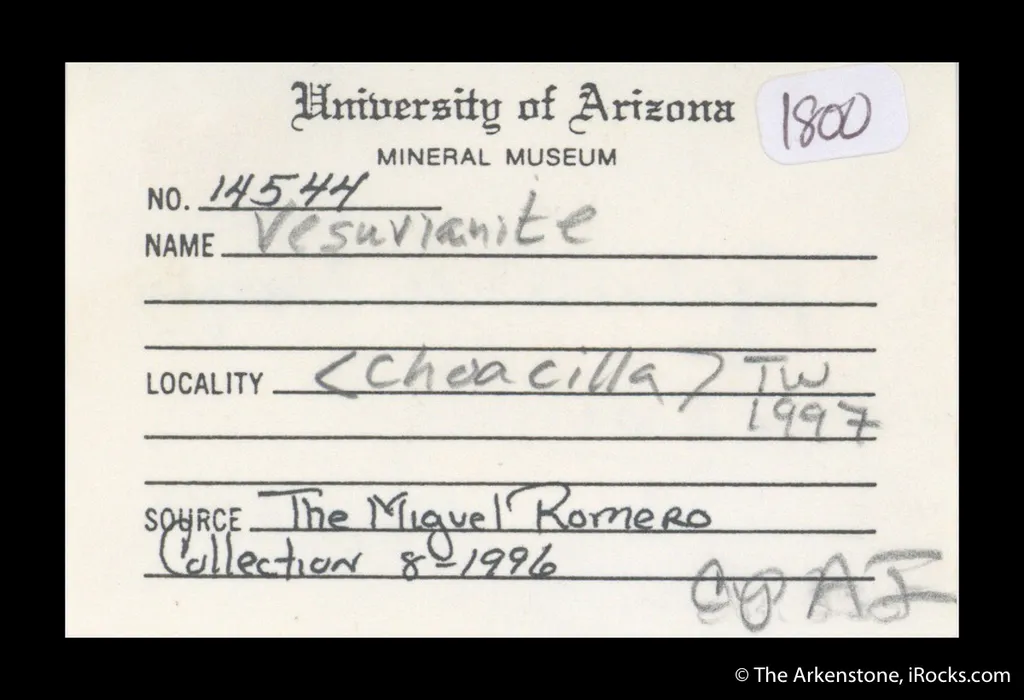 University of Arizona
1800
MINERAL MUSEUM
NO. 14544
NAME Vesuvianite
LOCALITY (Choacilla) TW
1997
SOURCE The Miguel Romero
Collection 8-1996
© The Arkenstone, iRocks.com